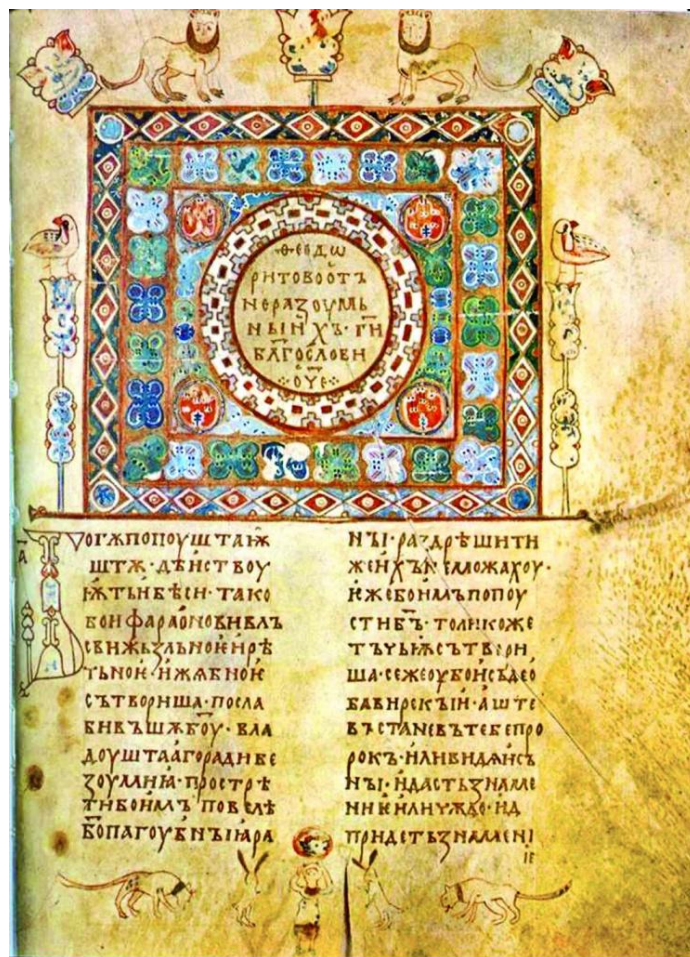 ·ѲЕОДѠ
РИТОВООТЪ
НЕРАЗОУМЬ
НЫИХЪ·ГН҃
БЛ҃ГОСЛОВИ
·:·ОЧ҃Е·:·
А҃
ОГ꙯А ПОПОУШТАѬ
ШТѪ·ДѢИСТВОУ
ѬТЬИ БѢСИ·ТАКО
БОИ ФАРАОНОВИ ВЛЬ
СВИ ЖЬЗЛЬНОѤ И РѢ
ЧЬНОѤ·И ЖѦБЬНОѤ
СЪТВОРИША·ПОСЛА
БИ ВЪШѦ БОУ҃·ВЛА
ДОУШТААГО РАДИ БЕ
ЗОУМИꙖ·ПРОСТРѢ
ТИ БО ИМЪ ПОВЕЛѢ
БЪ҃ ПАГОУБНЫꙖ РА
НЫ·РАЗДРѢШИТИ
ЖЕ ИХЪ НЕ МОЖАХОУ·
ИЖЕ БО ИМЪ ПОПОУ
СТИ БЪ҃·ТОЛИКО ЖЕ
ТЪЧЬѬ СЪТВОРИ
ША·СЕ ЖЕ ОУБО И СЪДЕѲ
БАВИРСКЪИ·АШТЕ
ВЪСТАНЕ ВЪ ТЕБЕ ПРО
РОКЪ·ИЛИ ВИДѦИ СЪ
НЫ·И ДАСТЬ ЗНАМЕ
НИѤ ИЛИ ЧУЖДО·И Д
ПРИДЕТЬ ЗНАМЕНІ
ІЕ